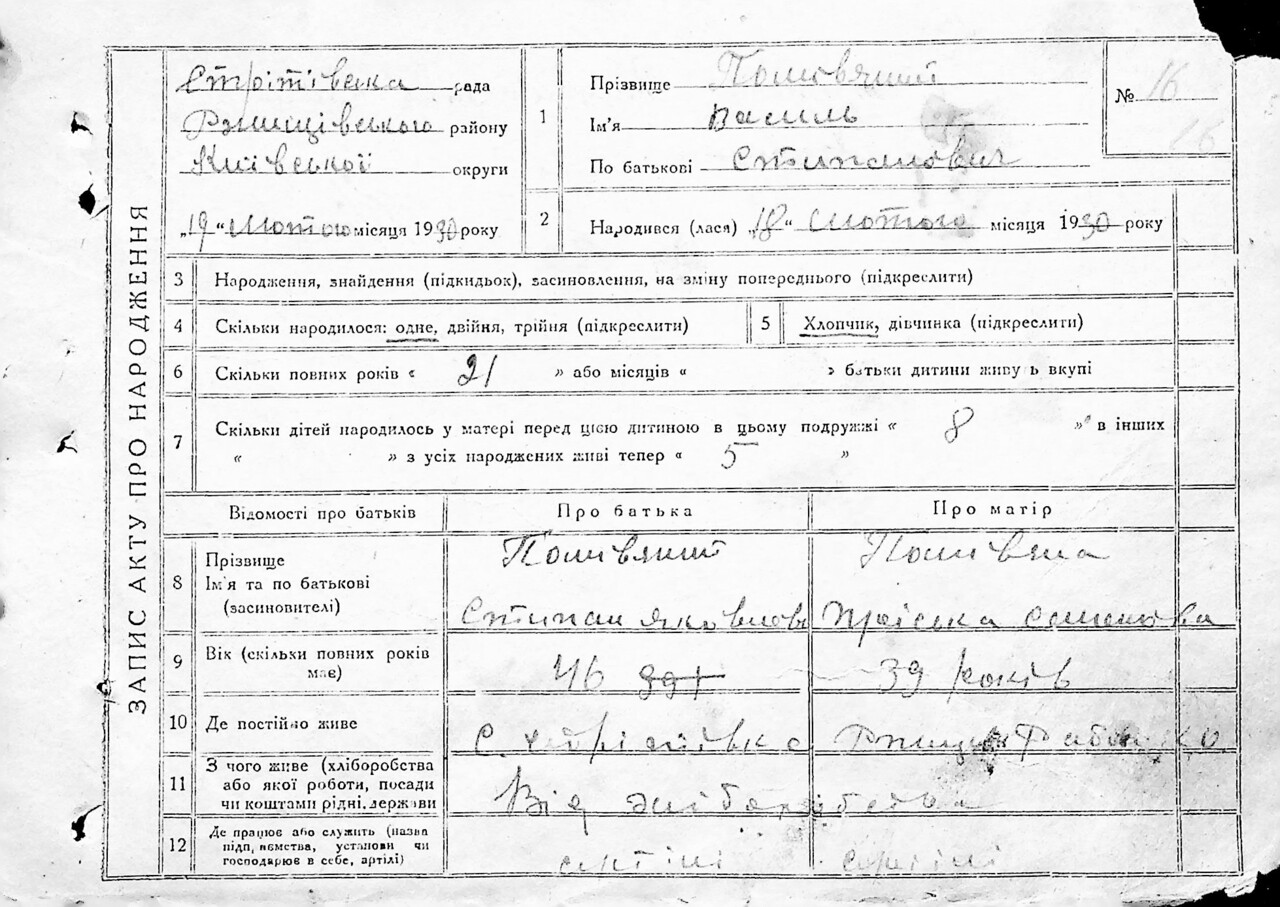 ЗАПИС АКТУ ПРО НАРОДЖЕННЯ
Стрітівська рада
Ржищівського району
Київської округи
„19“ Лютого місяця 1930 року
1
Прізвище
Ім'я Василь
По батькові Стипанович
№ 16
16
2
Народився (лася) „18“ Лютого місяця 1930 року
3 Народження, знайдення (підкидьок), засиновлення, на зміну попереднього (підкреслити)
4 Скільки народилося: одне, двійня, трійня (підкреслити)
5 Хлопчик, дівчинка (підкреслити)
6 Скільки повних років « 21 » або місяців « » батьки дитини живуть вкупі
7 Скільки дітей народилось у матері перед цією дитиною в цьому подружжі « 8 » в інших
« » з усіх народжених живі тепер « 5 »
Відомості про батьків
Про батька
Про матір
8 Прізвище
Ім'я та по батькові
(засиновителі)
Стипан Яковлов
Пріська
9 Вік (скільки повних років
має)
46
39 років
10 Де постійно живе
с.
11 З чого живе (хліборобства
або якої роботи, посади
чи коштами рідні, держави
Від хліборобства
12 Де працює або служить (назва
підприємства, установи чи
господарює в себе, артілі)